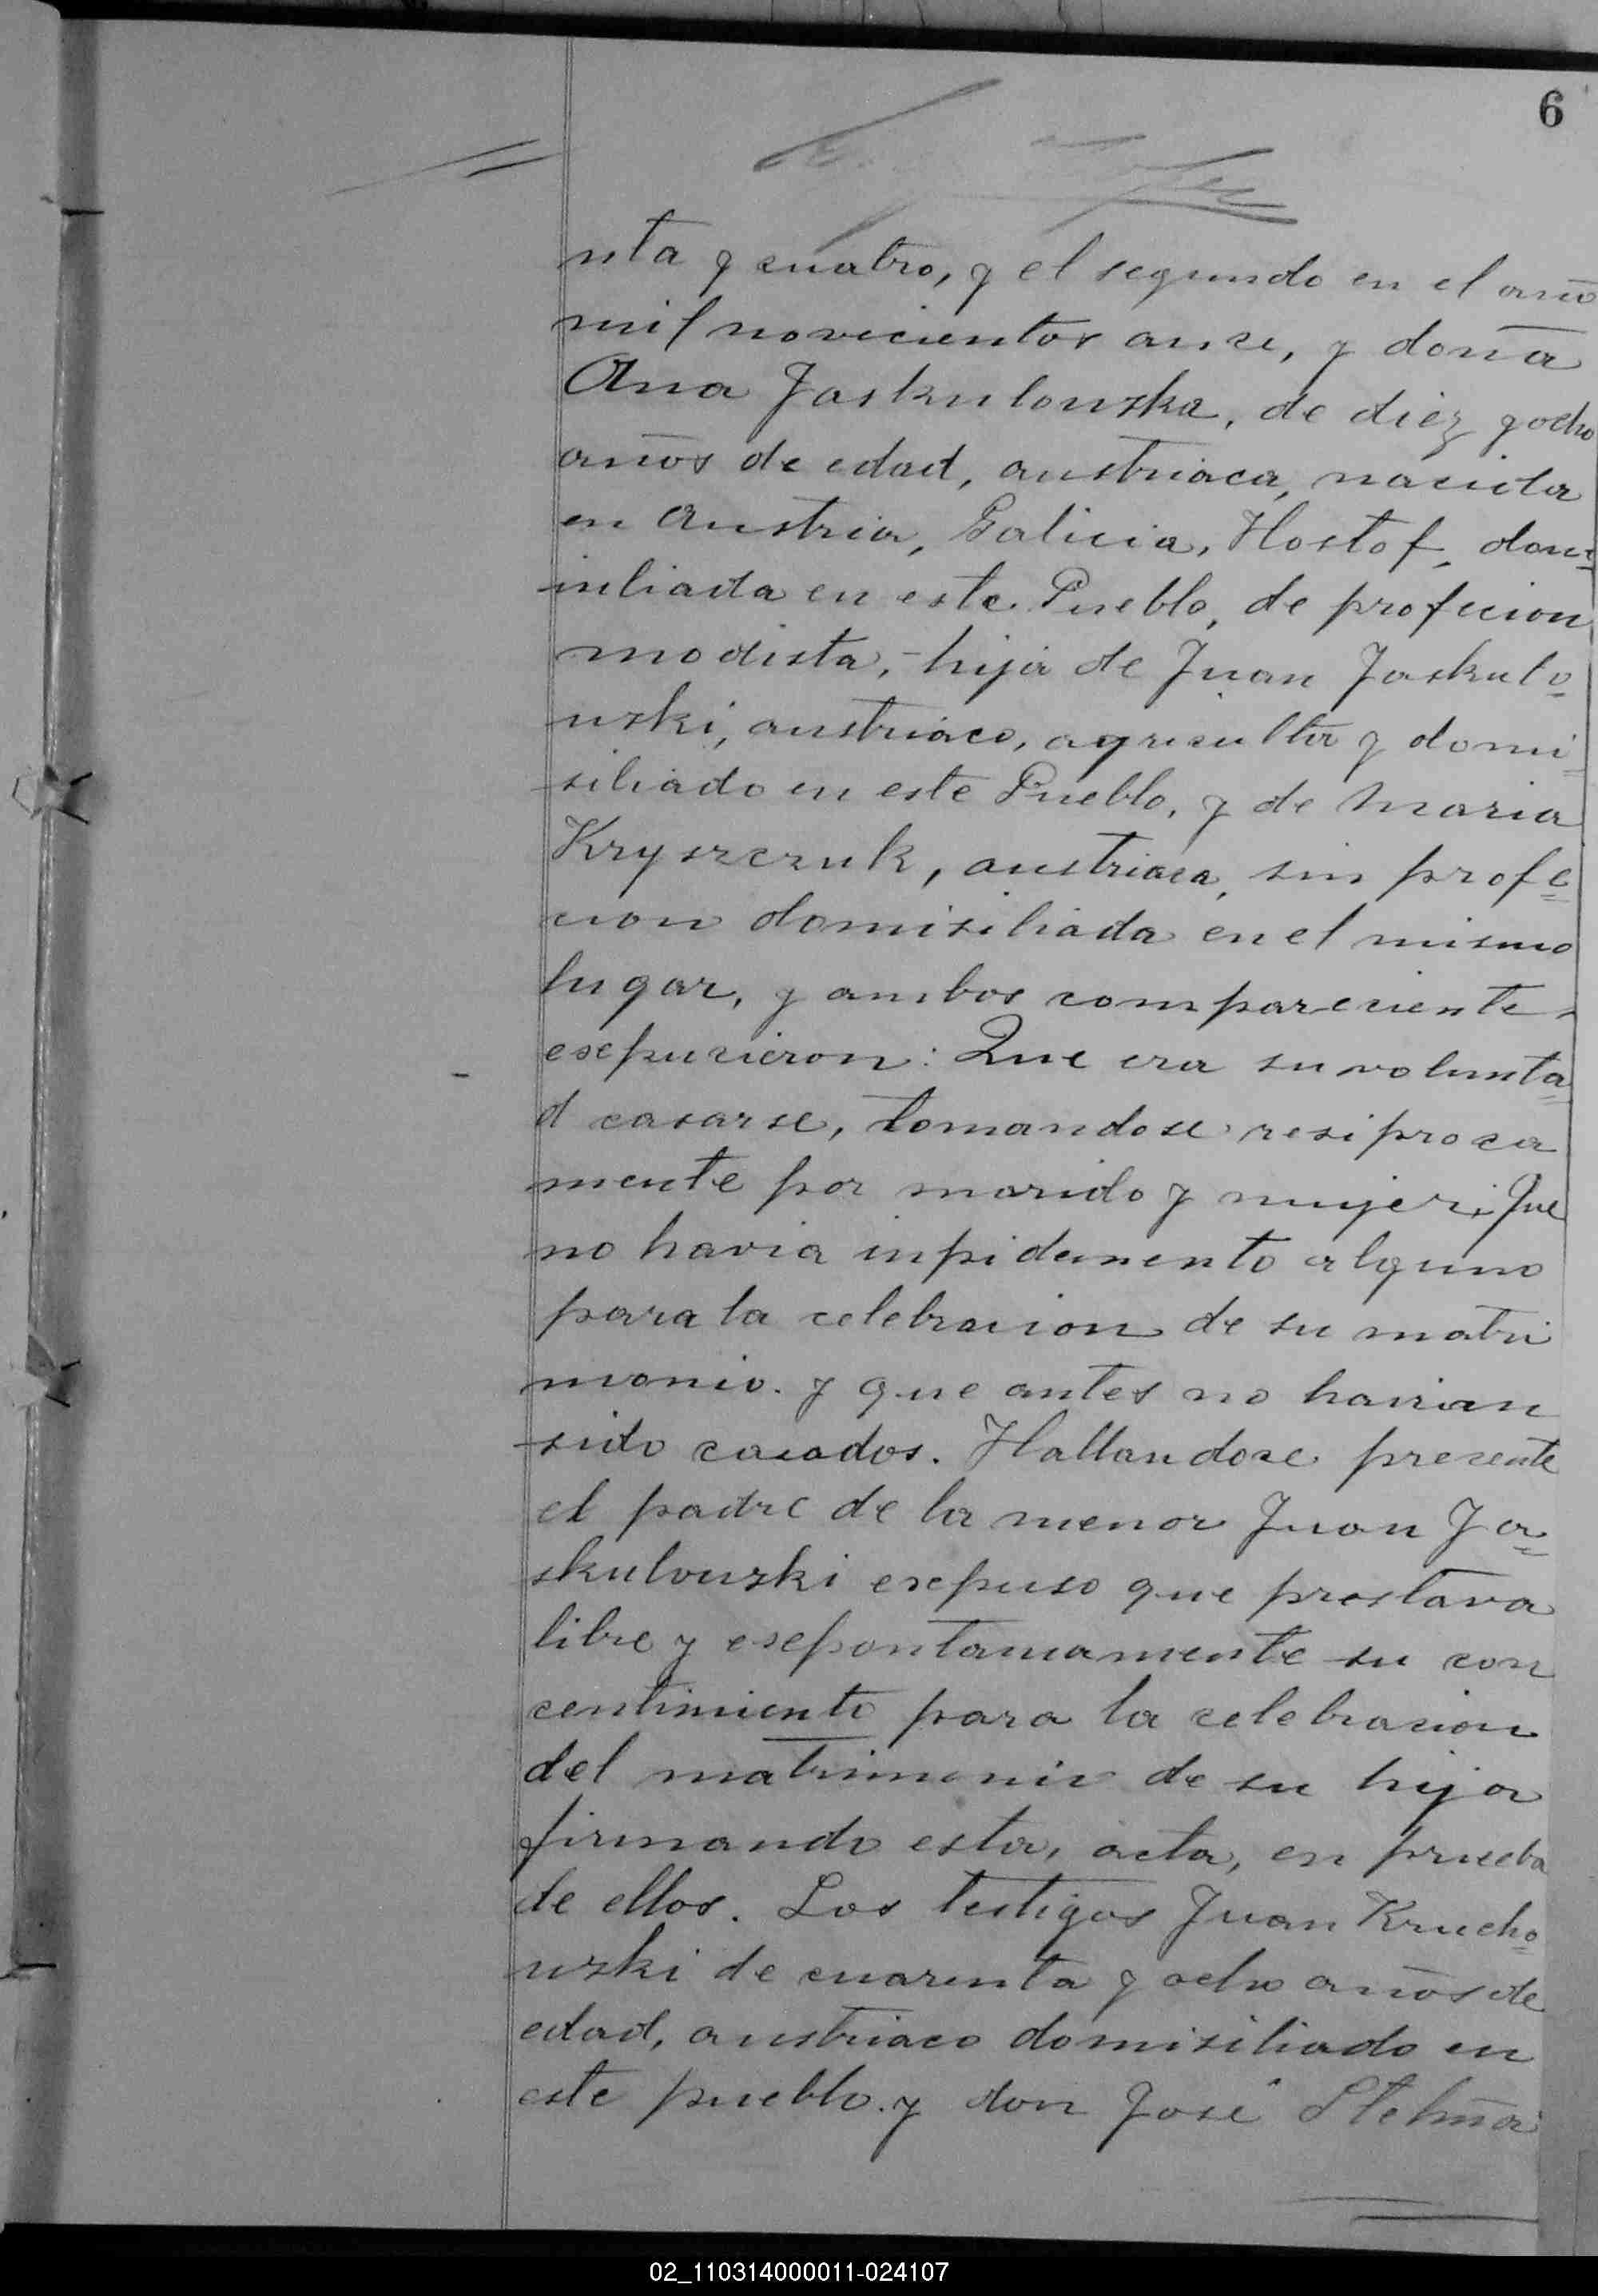 6
nta y cuatro, y el segundo en el año
mil novecientos onse, y doña
Ana Jaskulouska, de diez y ocho
años de edad, austriaca, nacida
en Austria, Galicia, Hostof, domi=
siliada en este Pueblo, de profecion
modista, hija de Juan Jaskulo=
uski, austriaco, agricultor y domi-
siliado en este Pueblo, y de Maria
Kryszczuk, austriaca, sin profe=
cion domisiliada en el mismo
lugar, y ambos compareciente,
esepucieron: Que era su volunta=
d casarse, tomandose resiproca
mente por marido y mujer; Que
no havia inpidemento alguno
para la celebracion de su matri
monio. y que antes no havian
sido casados. Hallandose presente
el padre de la menor Juan Ja=
skulouski esepuso que prestava
libre y esepontaniamente su con
centimiento para la celebracion
del matrimonio de su hija
firmando esta, acta, en prueba
de ellos. Los testigos Juan Krucho=
uski de cuarenta y ocho años de
edad, austriaco domisiliado en
este pueblo. y don José Stelma
02_110314000011-024107